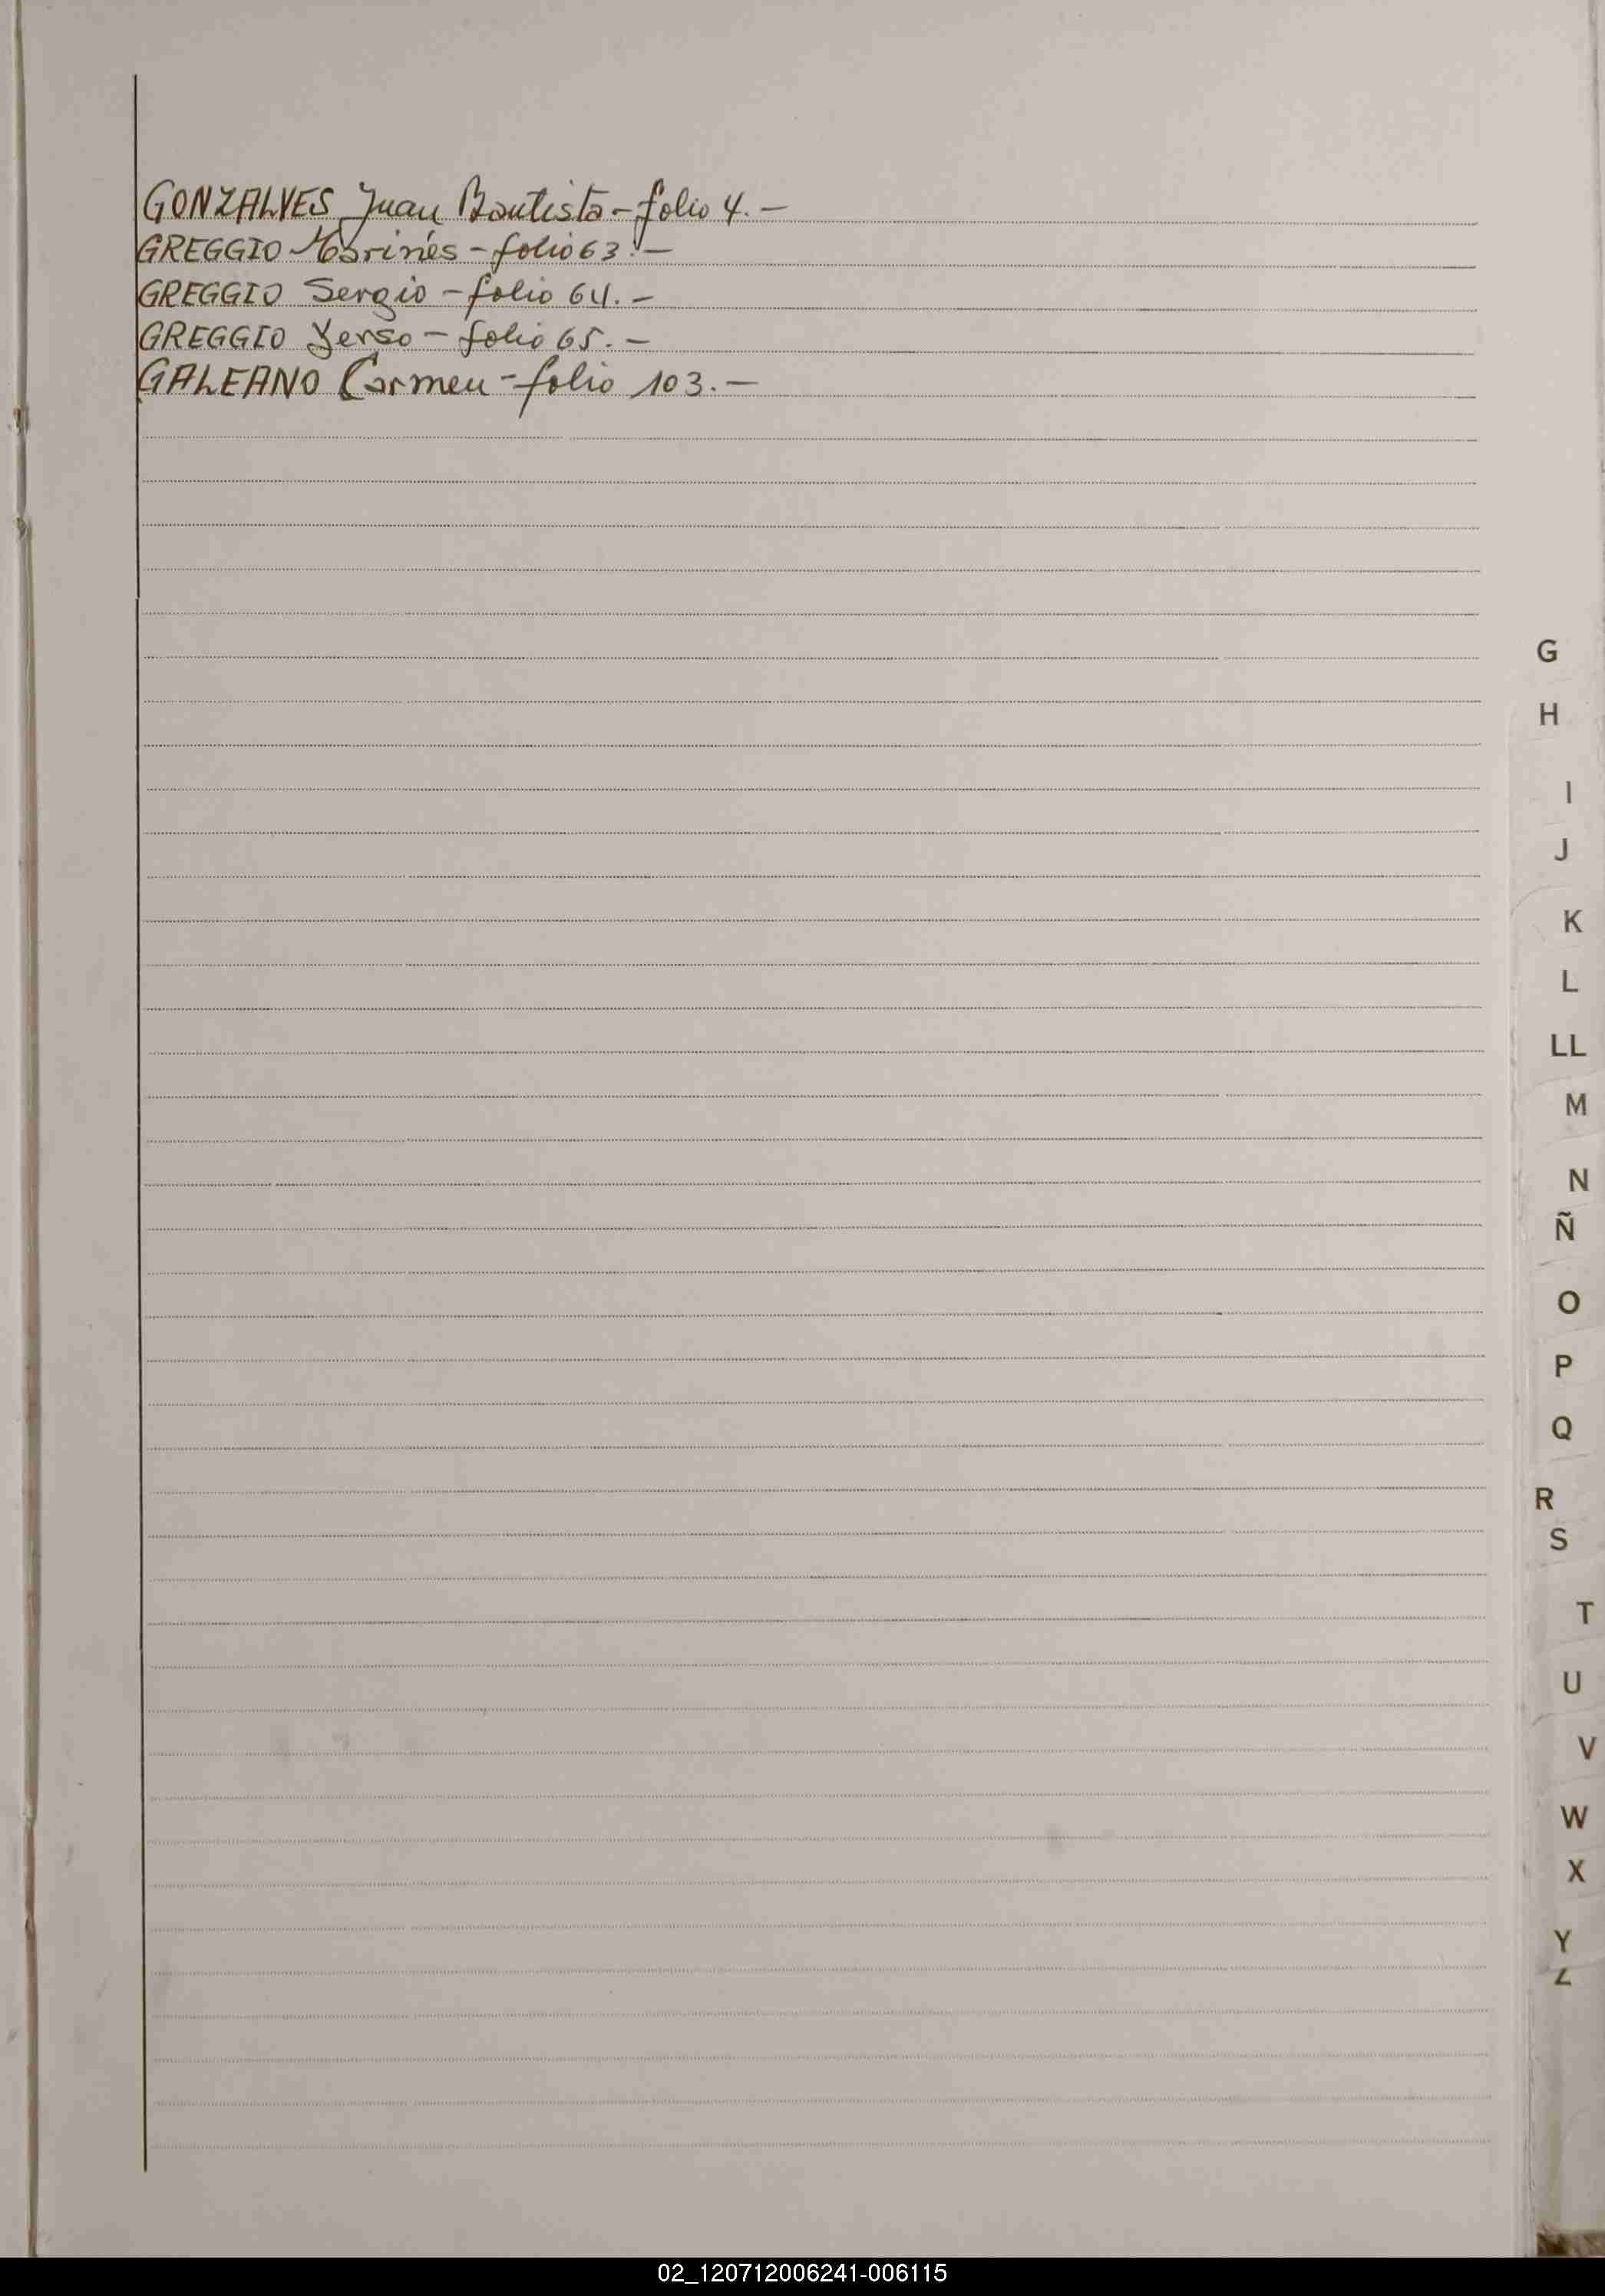 GONZALVES Juan Bautista - folio 4. -
GREGGIO Marinés - folio 63. -
GREGGIO Sergio - folio 64. -
GREGGIO Yerso - folio 65. -
GALEANO Carmen - folio 103. -
G
H
I
J
K
L
LL
M
N
Ñ
O
P
Q
R
S
T
U
V
W
X
Y
Z
02_120712006241-006115